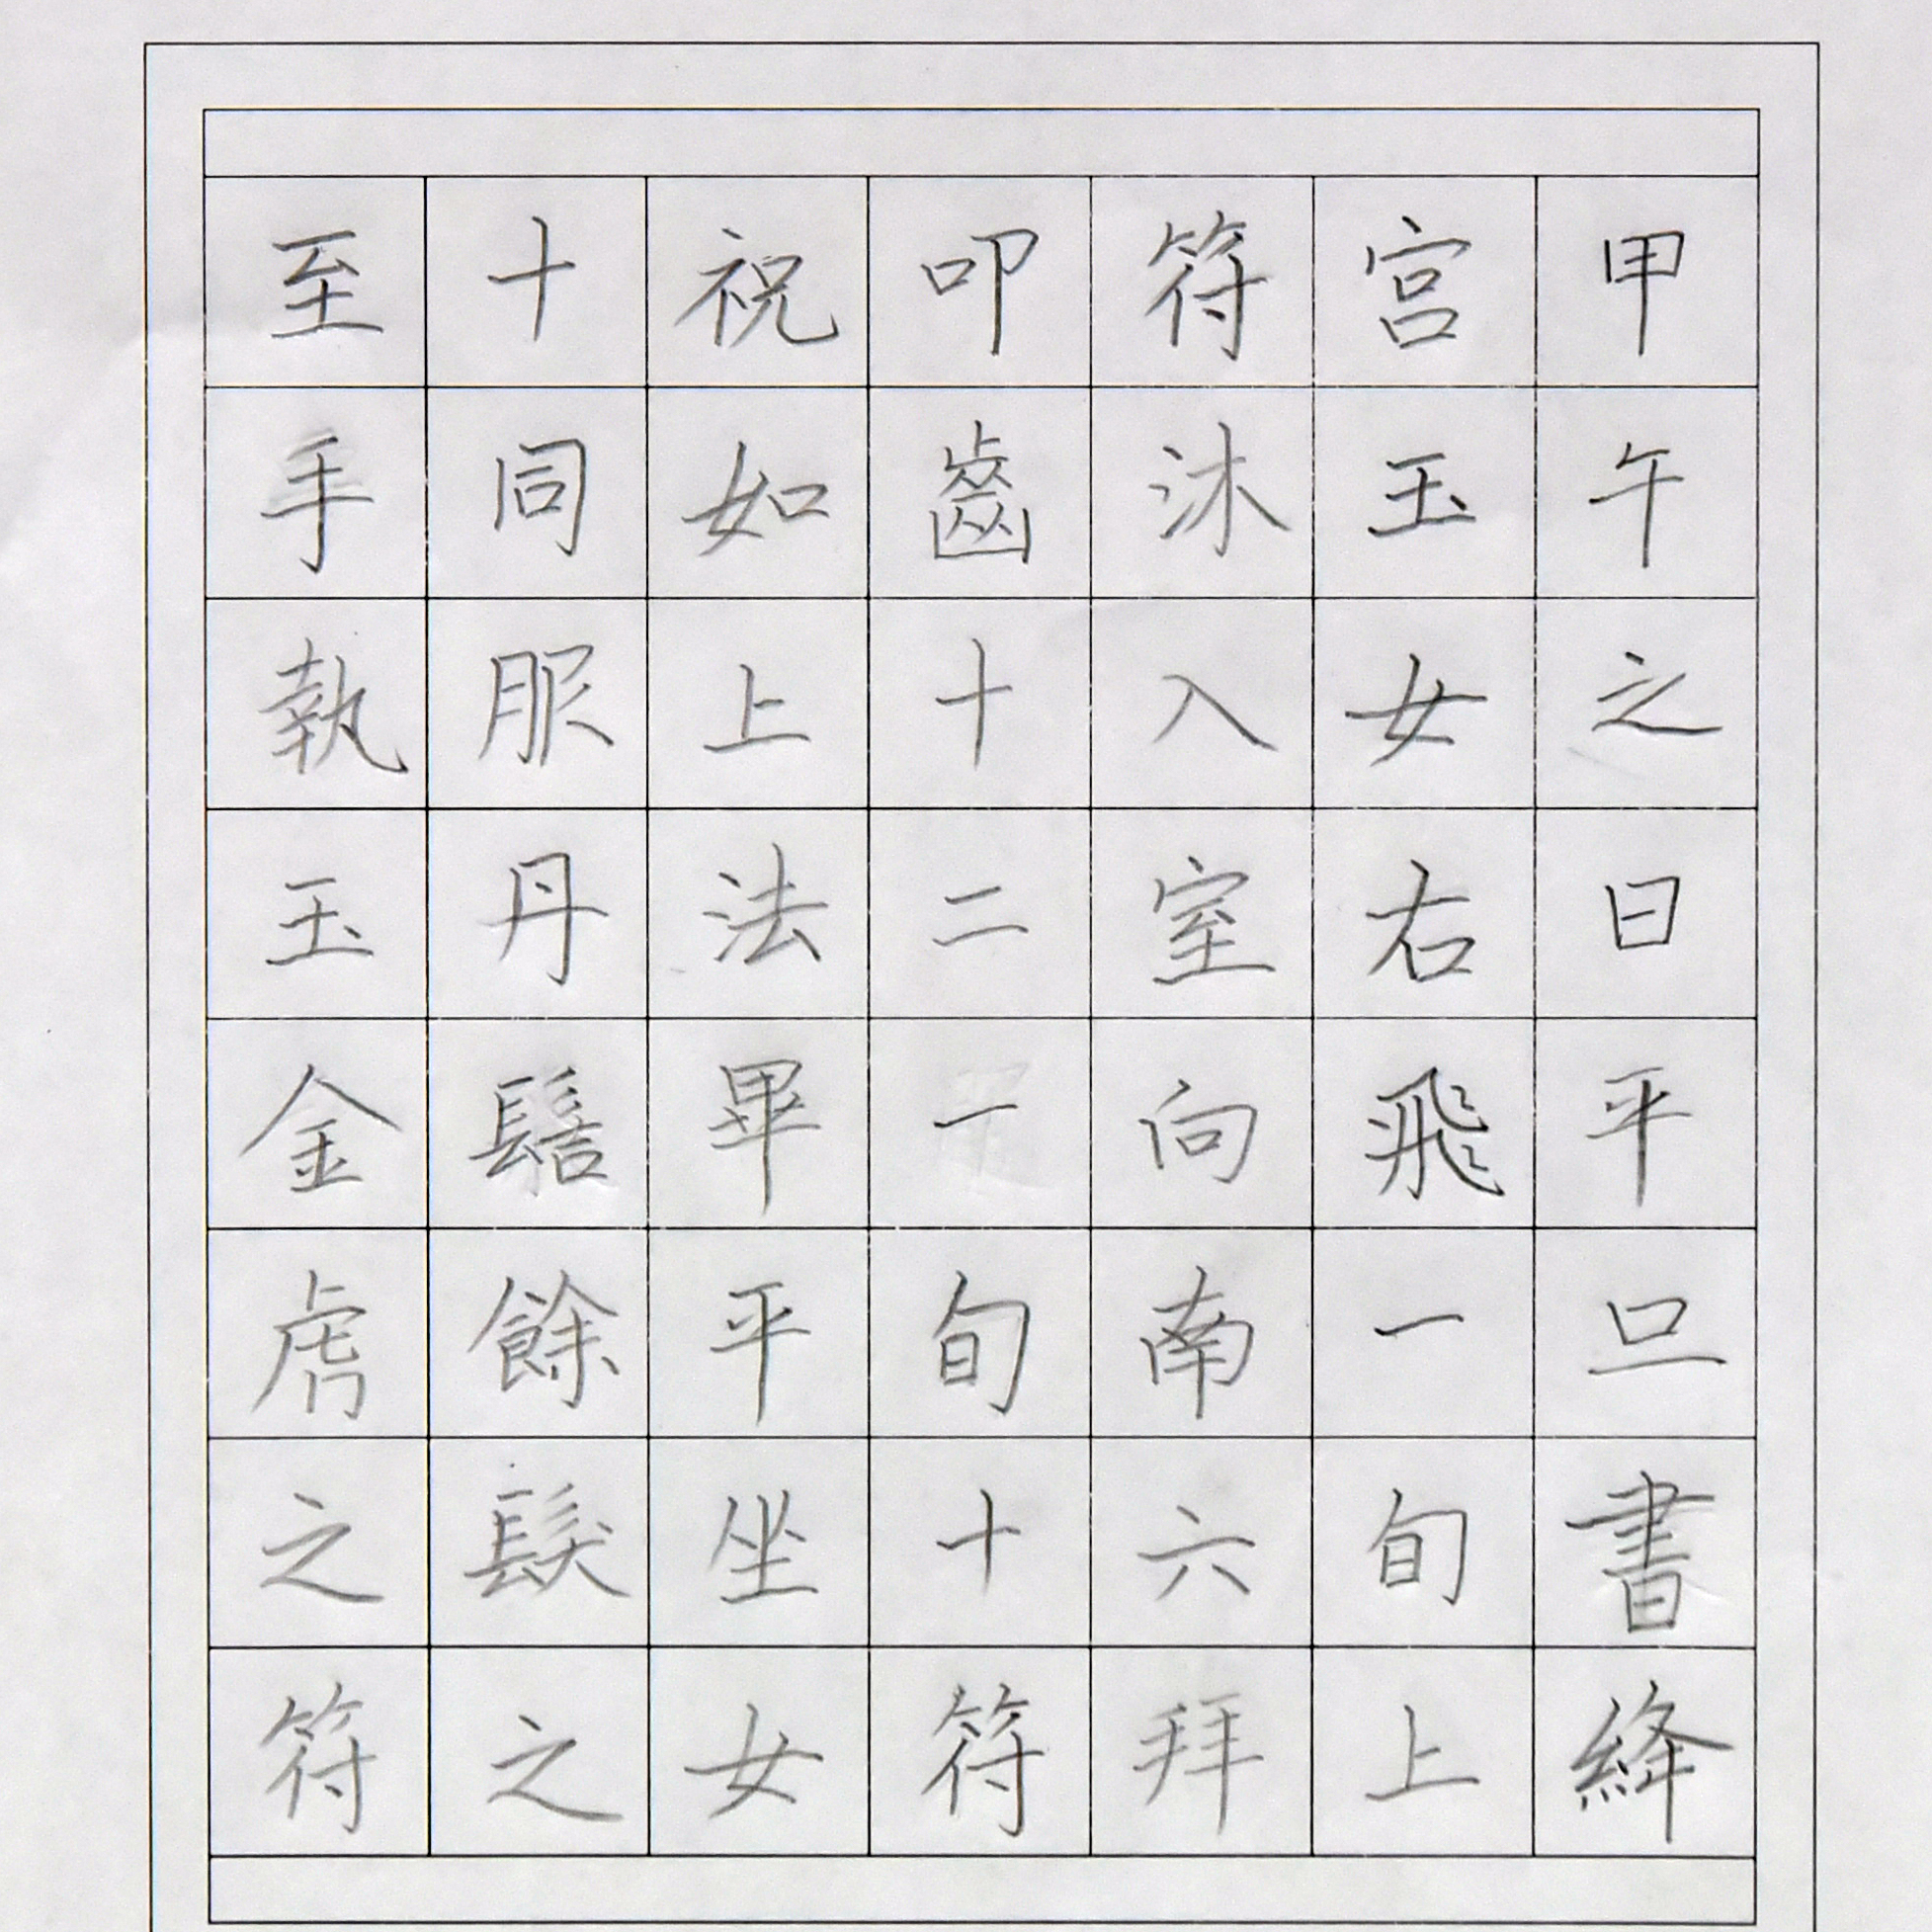 甲午之日平旦書絳
宫玉女右飛一旬上
符沐入室向南六拜
叩齒十二一旬十符
祝如上法畢平坐女
十同服丹髻餘髮之
至手執玉金虎之符